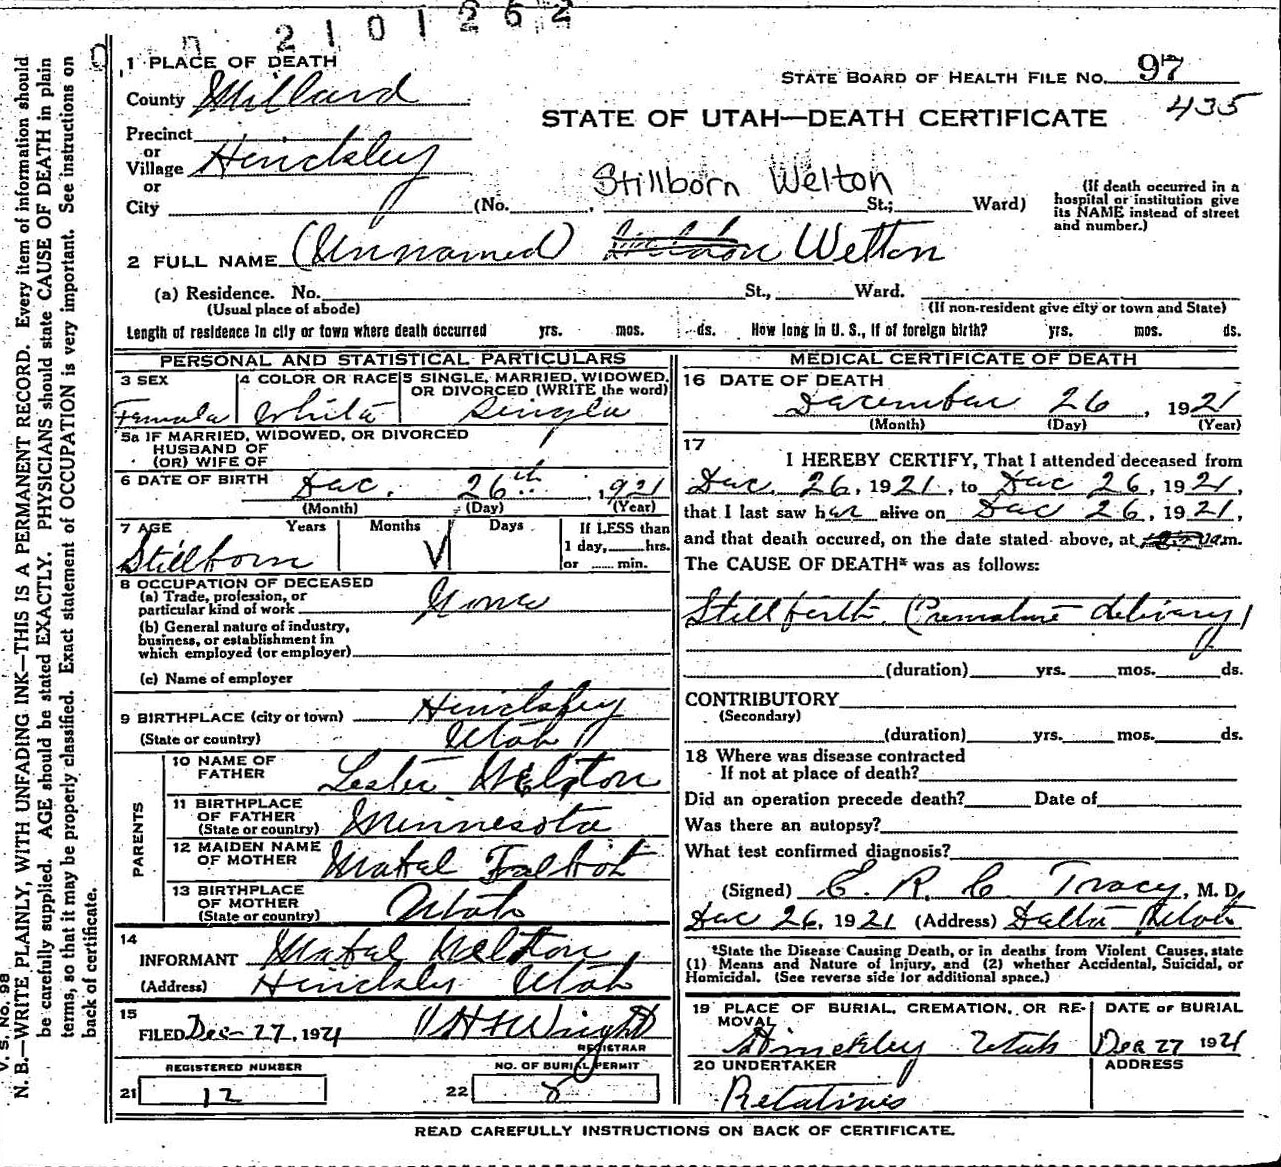 2101262
1 PLACE OF DEATH
STATE BOARD OF HEALTH FILE No. 97
435
County Millard
STATE OF UTAH—DEATH CERTIFICATE
Precinct
or
Village Hinckley
or
City (No. , Stillborn Welton St.; Ward)
(If death occurred in a
hospital or institution give
its NAME instead of street
and number.)
2 FULL NAME (Unnamed) Welton
(a) Residence. No. St., Ward.
(Usual place of abode) (If non-resident give city or town and State)
Length of residence in city or town where death occurred yrs. mos. ds. How long in U. S., if of foreign birth? yrs. mos. ds.
PERSONAL AND STATISTICAL PARTICULARS
3 SEX 4 COLOR OR RACE 5 SINGLE, MARRIED, WIDOWED,
OR DIVORCED (WRITE the word)
Female White Single
5a IF MARRIED, WIDOWED, OR DIVORCED
HUSBAND OF
(OR) WIFE OF
6 DATE OF BIRTH Dec. 26th, 1921
(Month) (Day) (Year)
7 AGE Years Months Days If LESS than
1 day, hrs.
or min.
Stillborn
8 OCCUPATION OF DECEASED
(a) Trade, profession, or
particular kind of work None
(b) General nature of industry,
business, or establishment in
which employed (or employer)
(c) Name of employer
9 BIRTHPLACE (city or town) Hinckley
(State or country) Utah
PARENTS
10 NAME OF
FATHER Lester Welton
11 BIRTHPLACE
OF FATHER
(State or country) Minnesota
12 MAIDEN NAME
OF MOTHER Mabel Talbot
13 BIRTHPLACE
OF MOTHER
(State or country) Utah
14
INFORMANT Mabel Welton
(Address) Hinckley Utah
15
FILED Dec 27, 1921 Wright
REGISTRAR
REGISTERED NUMBER NO. OF BURIAL PERMIT
21 12 22 8
MEDICAL CERTIFICATE OF DEATH
16 DATE OF DEATH
December 26, 1921
(Month) (Day) (Year)
17
I HEREBY CERTIFY, That I attended deceased from
Dec. 26, 1921, to Dec 26, 1921,
that I last saw her alive on Dec 26, 1921,
and that death occured, on the date stated above, at m.
The CAUSE OF DEATH* was as follows:
Stillbirth (Premature delivery)
(duration) yrs. mos. ds.
CONTRIBUTORY
(Secondary)
(duration) yrs. mos. ds.
18 Where was disease contracted
If not at place of death?
Did an operation precede death? Date of
Was there an autopsy?
What test confirmed diagnosis?
(Signed) C. R. C Tracy, M. D.
Dec 26, 1921 (Address) Delta Utah
*State the Disease Causing Death, or in deaths from Violent Causes, state
(1) Means and Nature of Injury, and (2) whether Accidental, Suicidal, or
Homicidal. (See reverse side for additional space.)
19 PLACE OF BURIAL, CREMATION, OR RE-
MOVAL
Hinckley Utah
DATE OF BURIAL
Dec 27 1921
20 UNDERTAKER
Relatives
ADDRESS
READ CAREFULLY INSTRUCTIONS ON BACK OF CERTIFICATE.
V. S. No. 98
N. B.—WRITE PLAINLY, WITH UNFADING INK—THIS IS A PERMANENT RECORD. Every item of information should
be carefully supplied. AGE should be stated EXACTLY. PHYSICIANS should state CAUSE OF DEATH in plain
terms, so that it may be properly classified. Exact statement of OCCUPATION is very important. See instructions on
back of certificate.